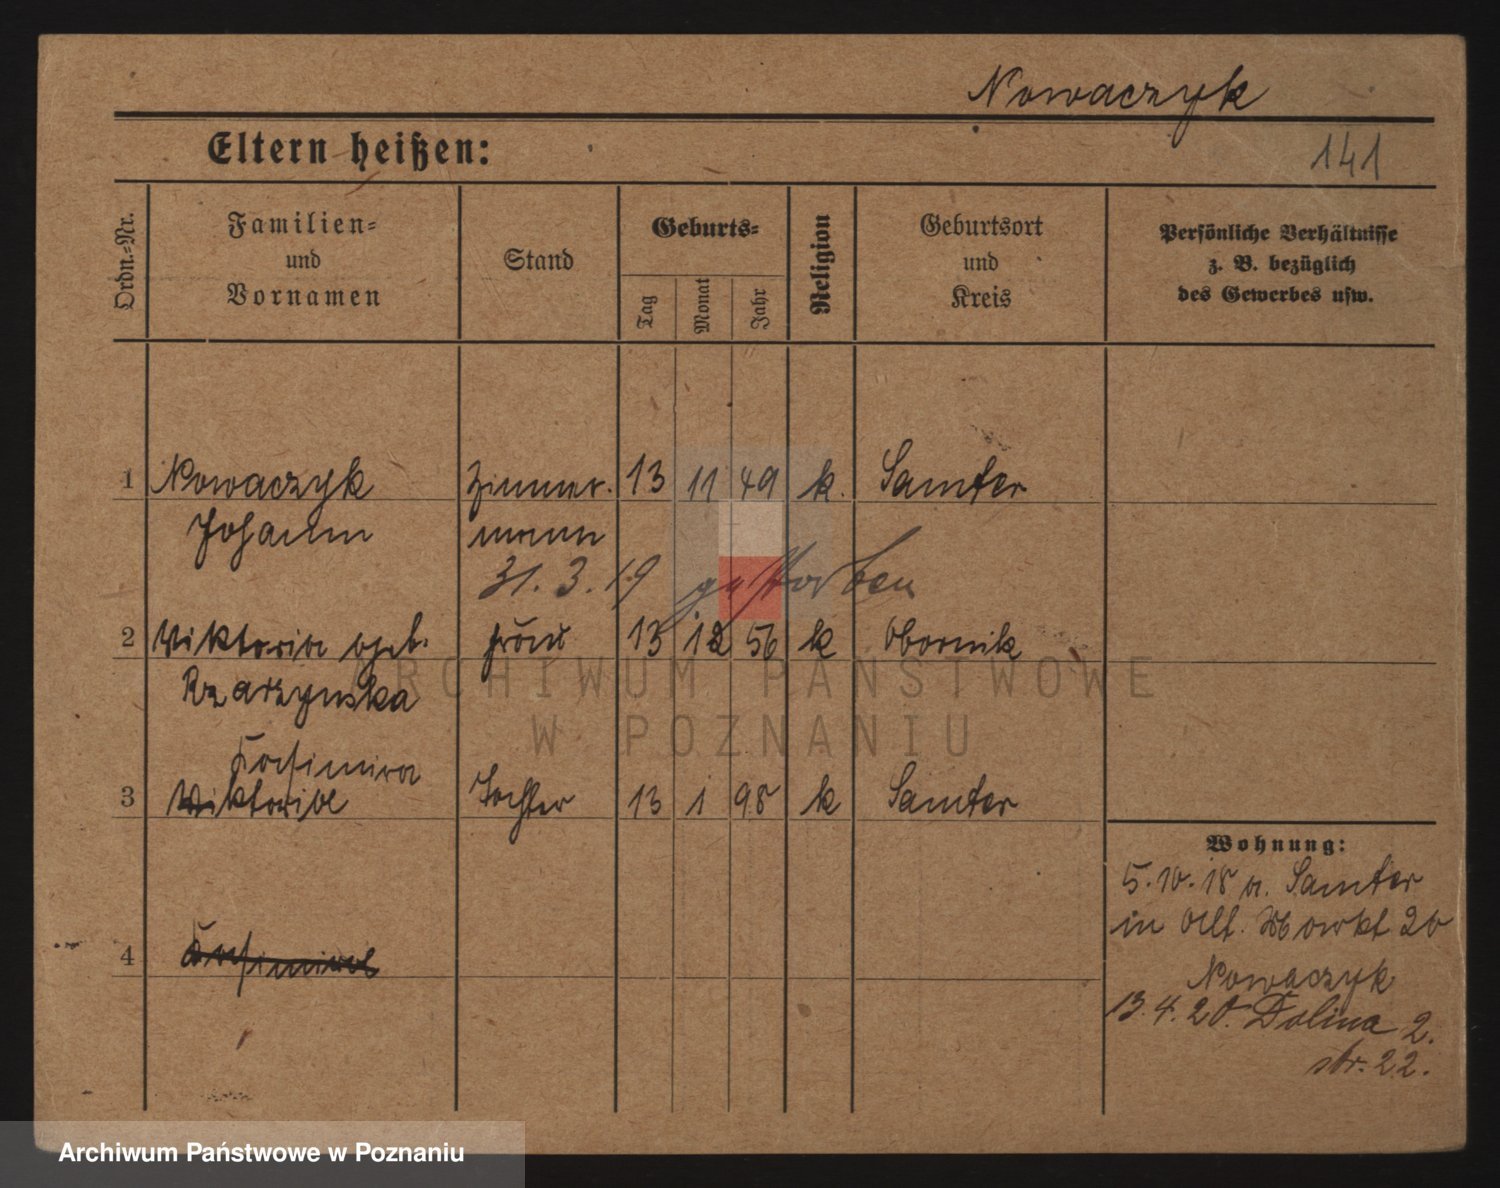 Nowaczyk
141
Eltern heißen:
Ordn.-Nr.
Familien-
und
Vornamen
Stand
Geburts-
Tag
Monat
Jahr
Religion
Geburtsort
und
Kreis
Persönliche Verhältnisse
z. B. bezüglich
des Gewerbes usw.
1 Nowaczyk Zimmer- 13 11 49 k. Samter
Johann mann
31. 3. 19 gestorben
2 Viktoria geb. Frau 13 12 56 k Obornik
Rzarzynska
Kasimira
3 Wiktoria Tochter 13 1 98 k Samter
4 Kasimira
Wohnung:
5.10.18 a. Samter
in Alt. Markt 20
Nowaczyk
13.4.20. Dolina 2.
str. 22.
ARCHIWUM PAŃSTWOWE
W POZNANIU
Archiwum Państwowe w Poznaniu